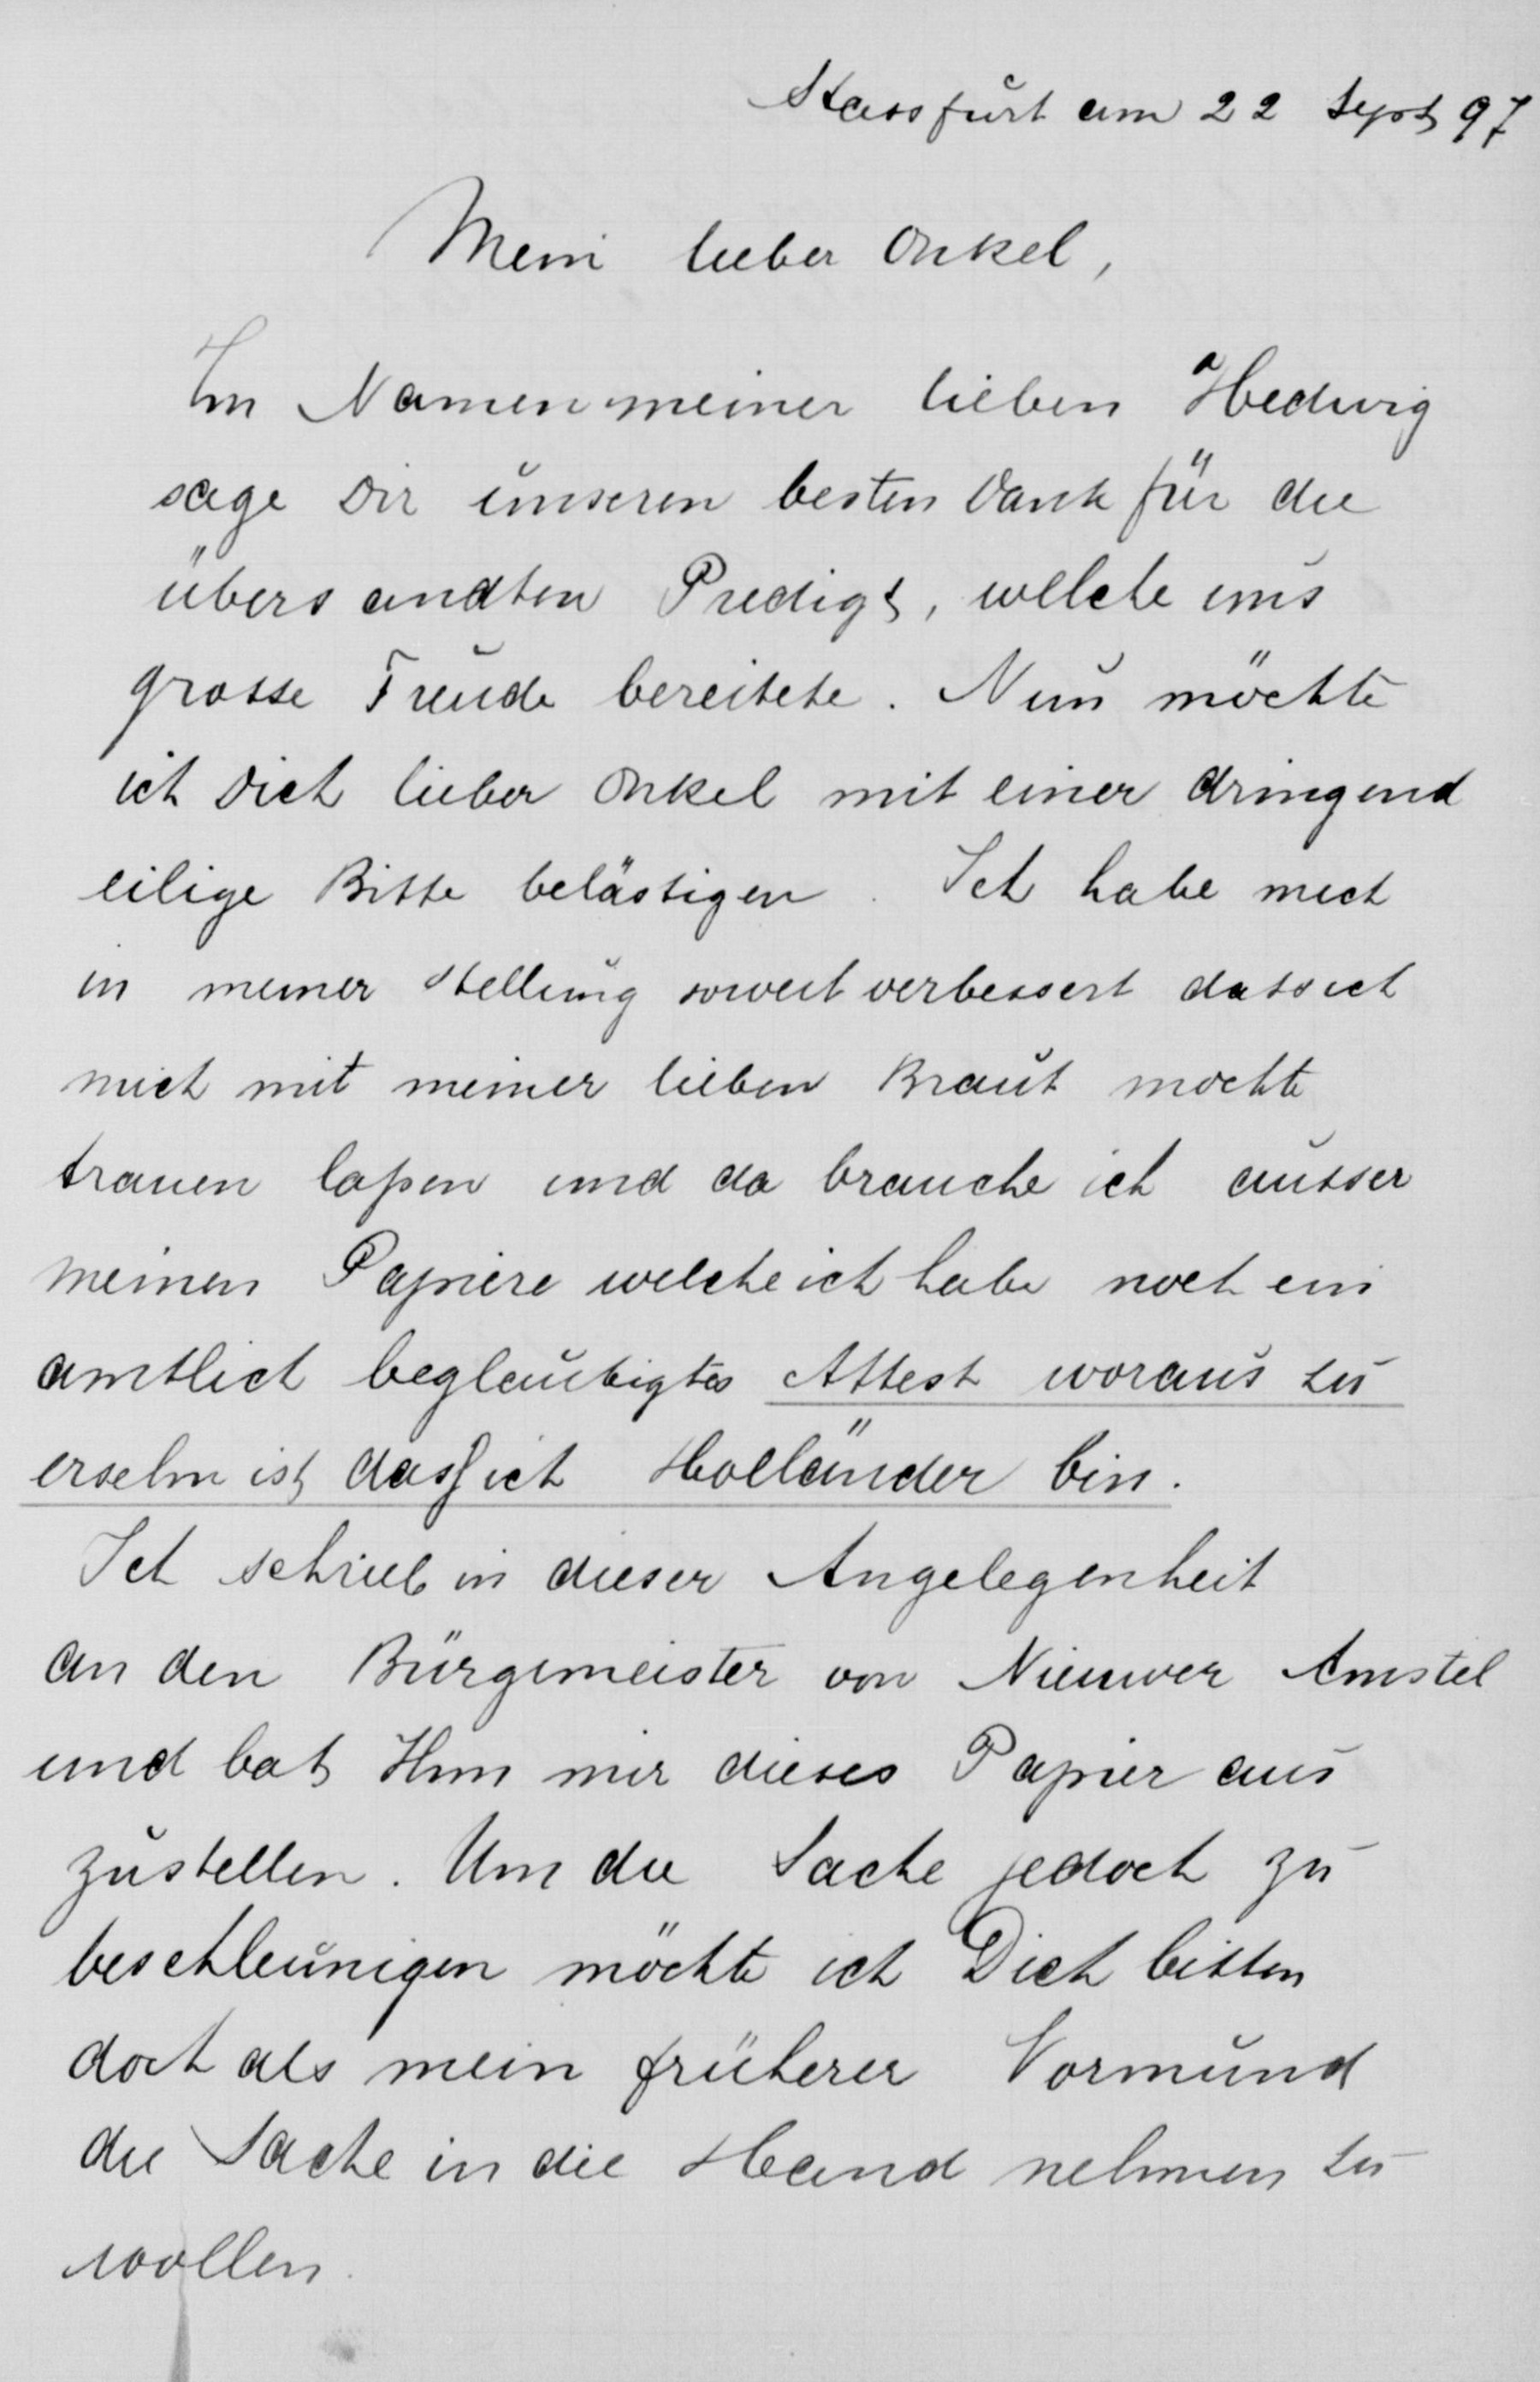 Stassfurt am 22 Sept 97
Mein lieber Onkel,
Im Namen meiner lieben Hedwig
sage Dir unseren besten Dank für die
übersandten Predigt, welche uns
grosse Freude bereitete. Nun möchte
ich Dich lieber Onkel mit einer dringend
eilige Bitte belästigen. Ich habe mich
in meiner Stellung soweit verbessert dass ich
mich mit meiner lieben Braut mochte
trauen laßen und da brauche ich ausser
meinen Papiere welche ich habe noch ein
amtlich beglaubigtes Attest woraus zu
ersehn ist dass ich Holländer bin.
Ich schrieb in dieser Angelegenheit
an den Bürgemeister von Nieuwer Amstel
und bat Ihm mir dieses Papier aus
zustellen. Um die Sache jedoch zu
beschleunigen möchte ich Dich bitten
doch als mein früherer Vormund
die Sache in die Hand nehmen zu
wollen.